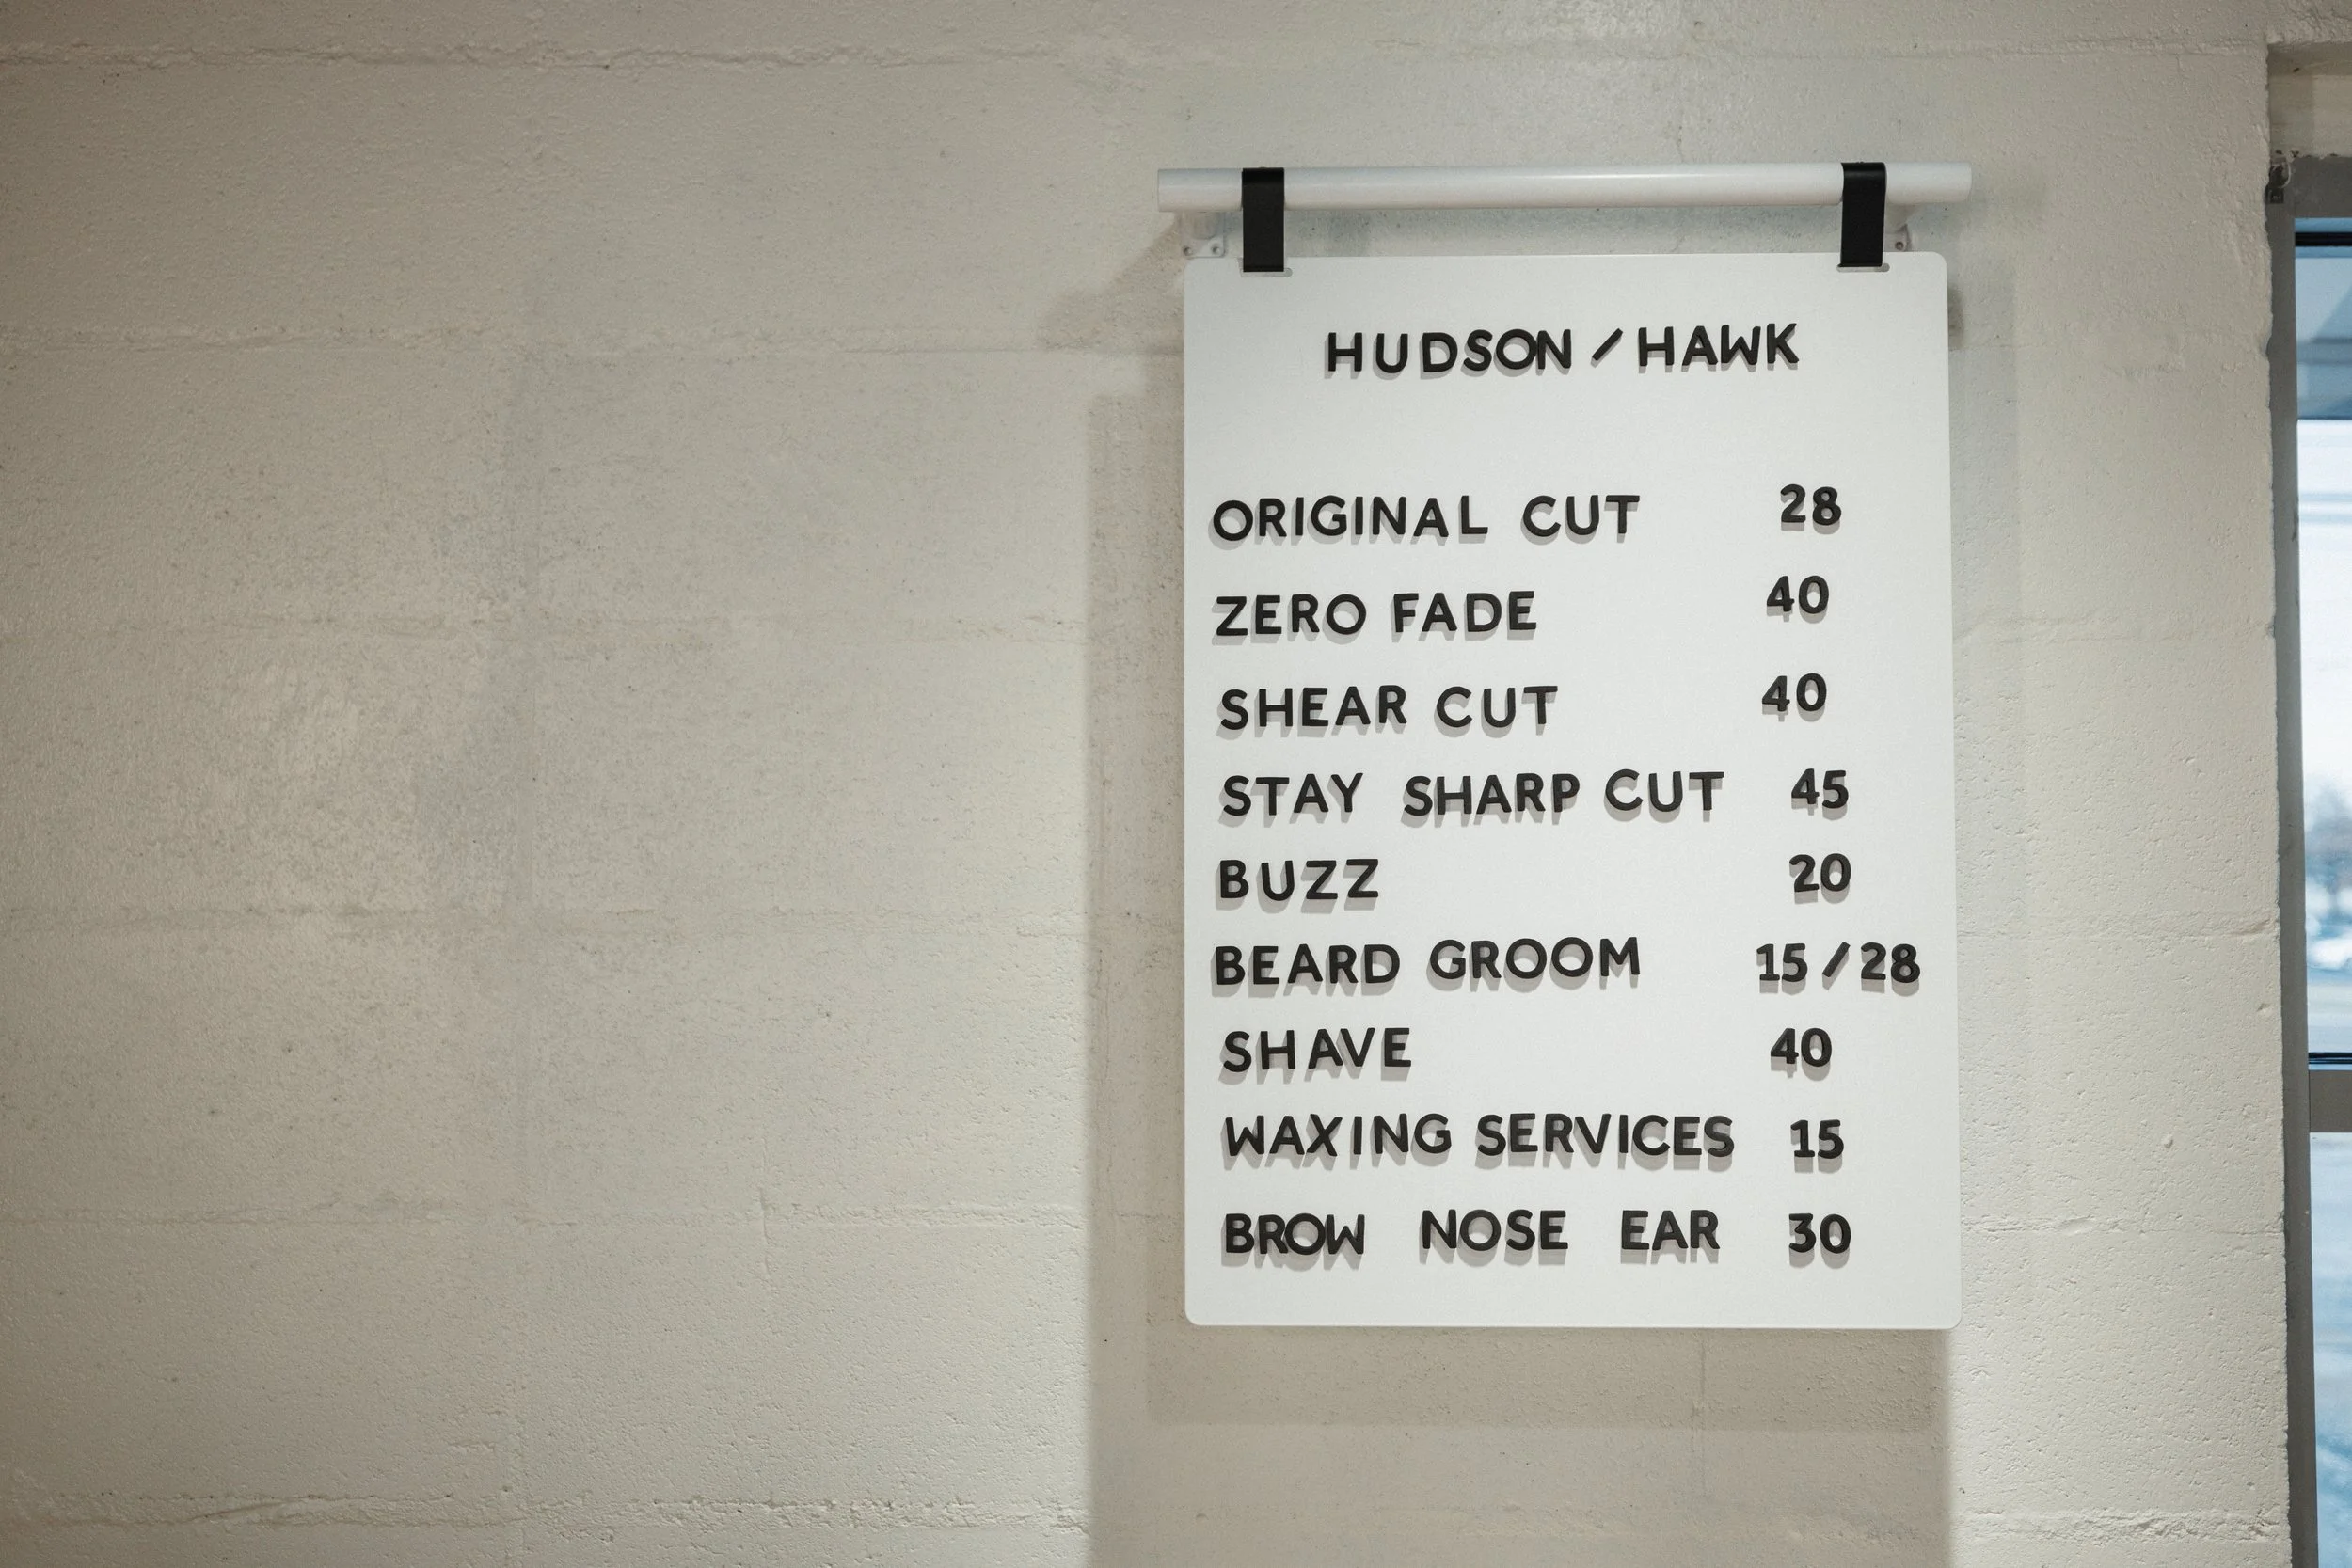 HUDSON / HAWK
ORIGINAL CUT 28
ZERO FADE 40
SHEAR CUT 40
STAY SHARP CUT 45
BUZZ 20
BEARD GROOM 15 / 28
SHAVE 40
WAXING SERVICES 15
BROW NOSE EAR 30